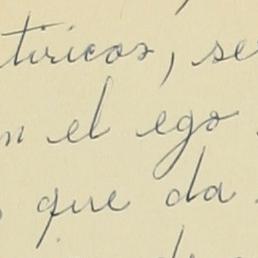 tiricos, se
n el ego
que da